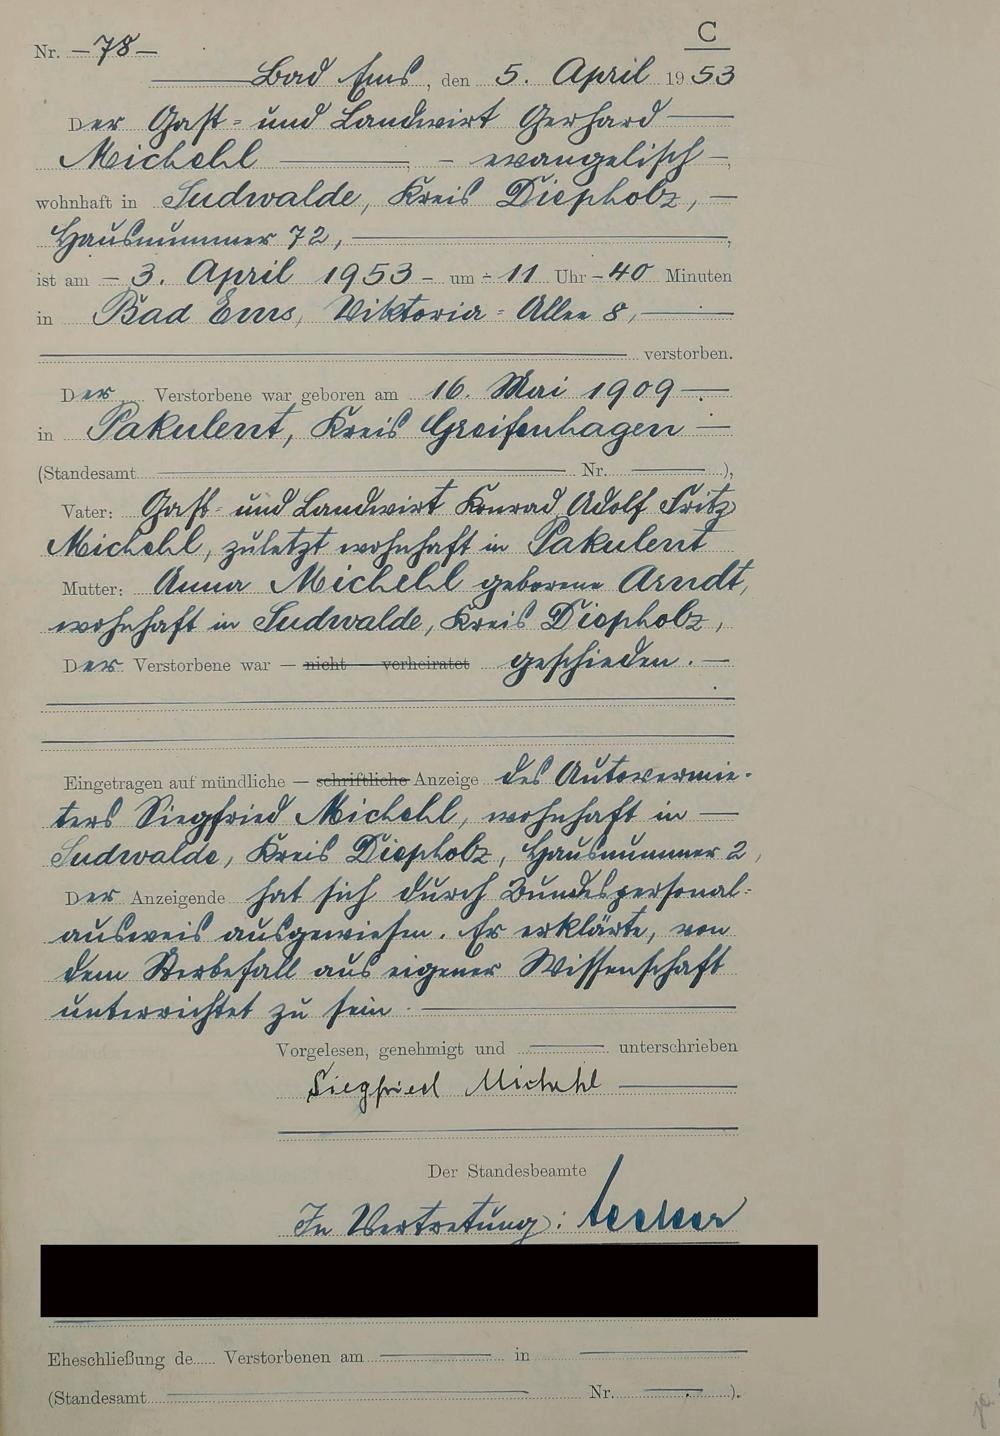 C
Nr. -78-
Bad Ems, den 5. April 1953
Der Gast- und Landwirt Gerhard
Michehl - evangelisch -,
wohnhaft in Sudwalde, Kreis Diepholz, -
Hausnummer 72,
ist am - 3. April 1953 - um - 11 Uhr - 40 Minuten
in Bad Ems, Viktoria-Allee 8,
verstorben.
Der Verstorbene war geboren am 16. Mai 1909
in Pakulent, Kreis Greifenhagen
(Standesamt Nr. ),
Vater: Gast- und Landwirt Konrad Adolf Fritz
Michehl, zuletzt wohnhaft in Pakulent
Mutter: Anna Michehl geborene Arndt,
wohnhaft in Sudwalde, Kreis Diepholz,
Der Verstorbene war — nicht — verheiratet geschieden. -
Eingetragen auf mündliche — schriftliche Anzeige des Autovermie-
ters Siegfried Michehl, wohnhaft in
Sudwalde, Kreis Diepholz, Hausnummer 2,
Der Anzeigende hat sich durch Bundespersonal-
ausweis ausgewiesen. Er erklärte, von
dem Sterbefall aus eigener Wissenschaft
unterrichtet zu sein.
Vorgelesen, genehmigt und unterschrieben
Siegfried Michehl
Der Standesbeamte
In Vertretung:
Eheschließung de..... Verstorbenen am in
(Standesamt Nr. ).